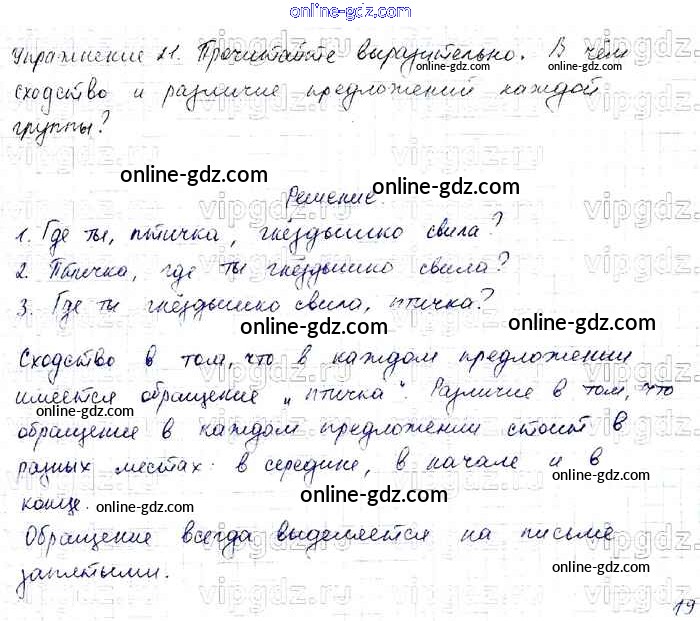 online-gdz.com
Упражнение 21. Прочитайте выразительно. В чём
online-gdz.com
сходство и различие предложений каждой
группы?
online-gdz.com
online-gdz.com
Решение.
1. Где ты, птичка, гнёздышко свила?
2. Птичка, где ты гнёздышко свила?
3. Где ты гнёздышко свила, птичка?
online-gdz.com
online-gdz.com
Сходство в том, что в каждом предложении
имеется обращение „птичка“. Различие в том, что
online-gdz.com
online-gdz.com
обращение в каждом предложении стоит в
разных местах: в середине, в начале и в
конце.
online-gdz.com
online-gdz.com
online-gdz.com
Обращение всегда выделяется на письме
запятыми.
online-gdz.com
online-gdz.com
19